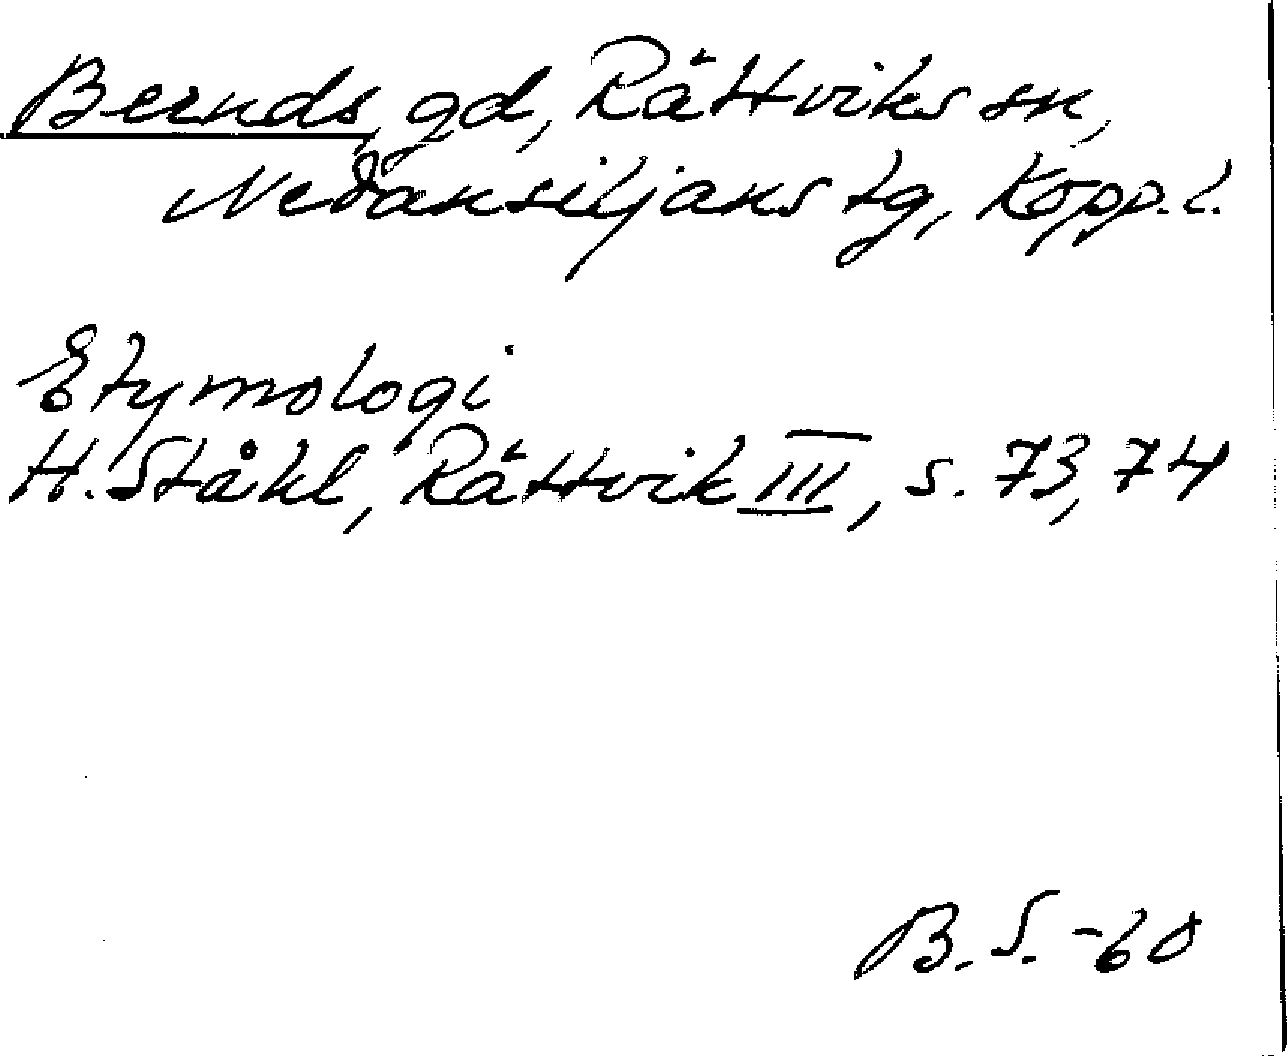 Bernds, gd, Rättviks sn,
Nedansiljans tg, Kopp. l.
Etymologi
H. Ståhl, Rättvik III, s. 73, 74
B. S. -60